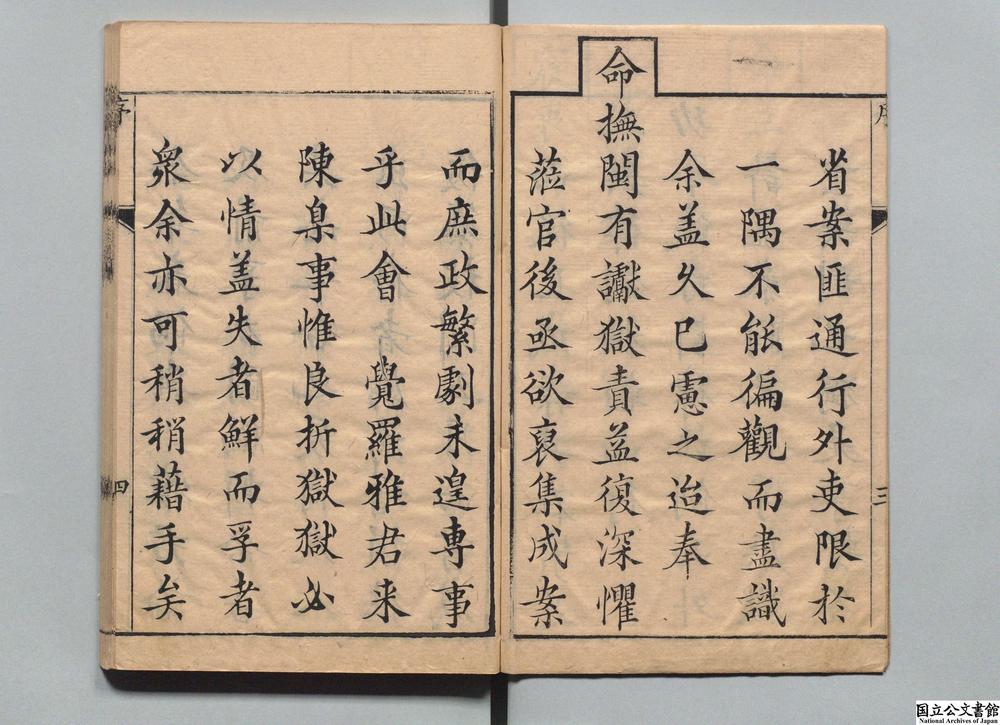 省案匪通行外吏限於
一隅不能徧觀而盡識
余盖久已慮之迨奉
命撫閩有讞獄責益復深懼
蒞官後亟欲裒集成案
序
三
而庶政繁劇未遑専事
乎此會覺羅雅君来
陳臬事惟良折獄獄必
以情盖失者鮮而孚者
衆余亦可稍稍藉手矣
序
四
国立公文書館
National Archives of Japan